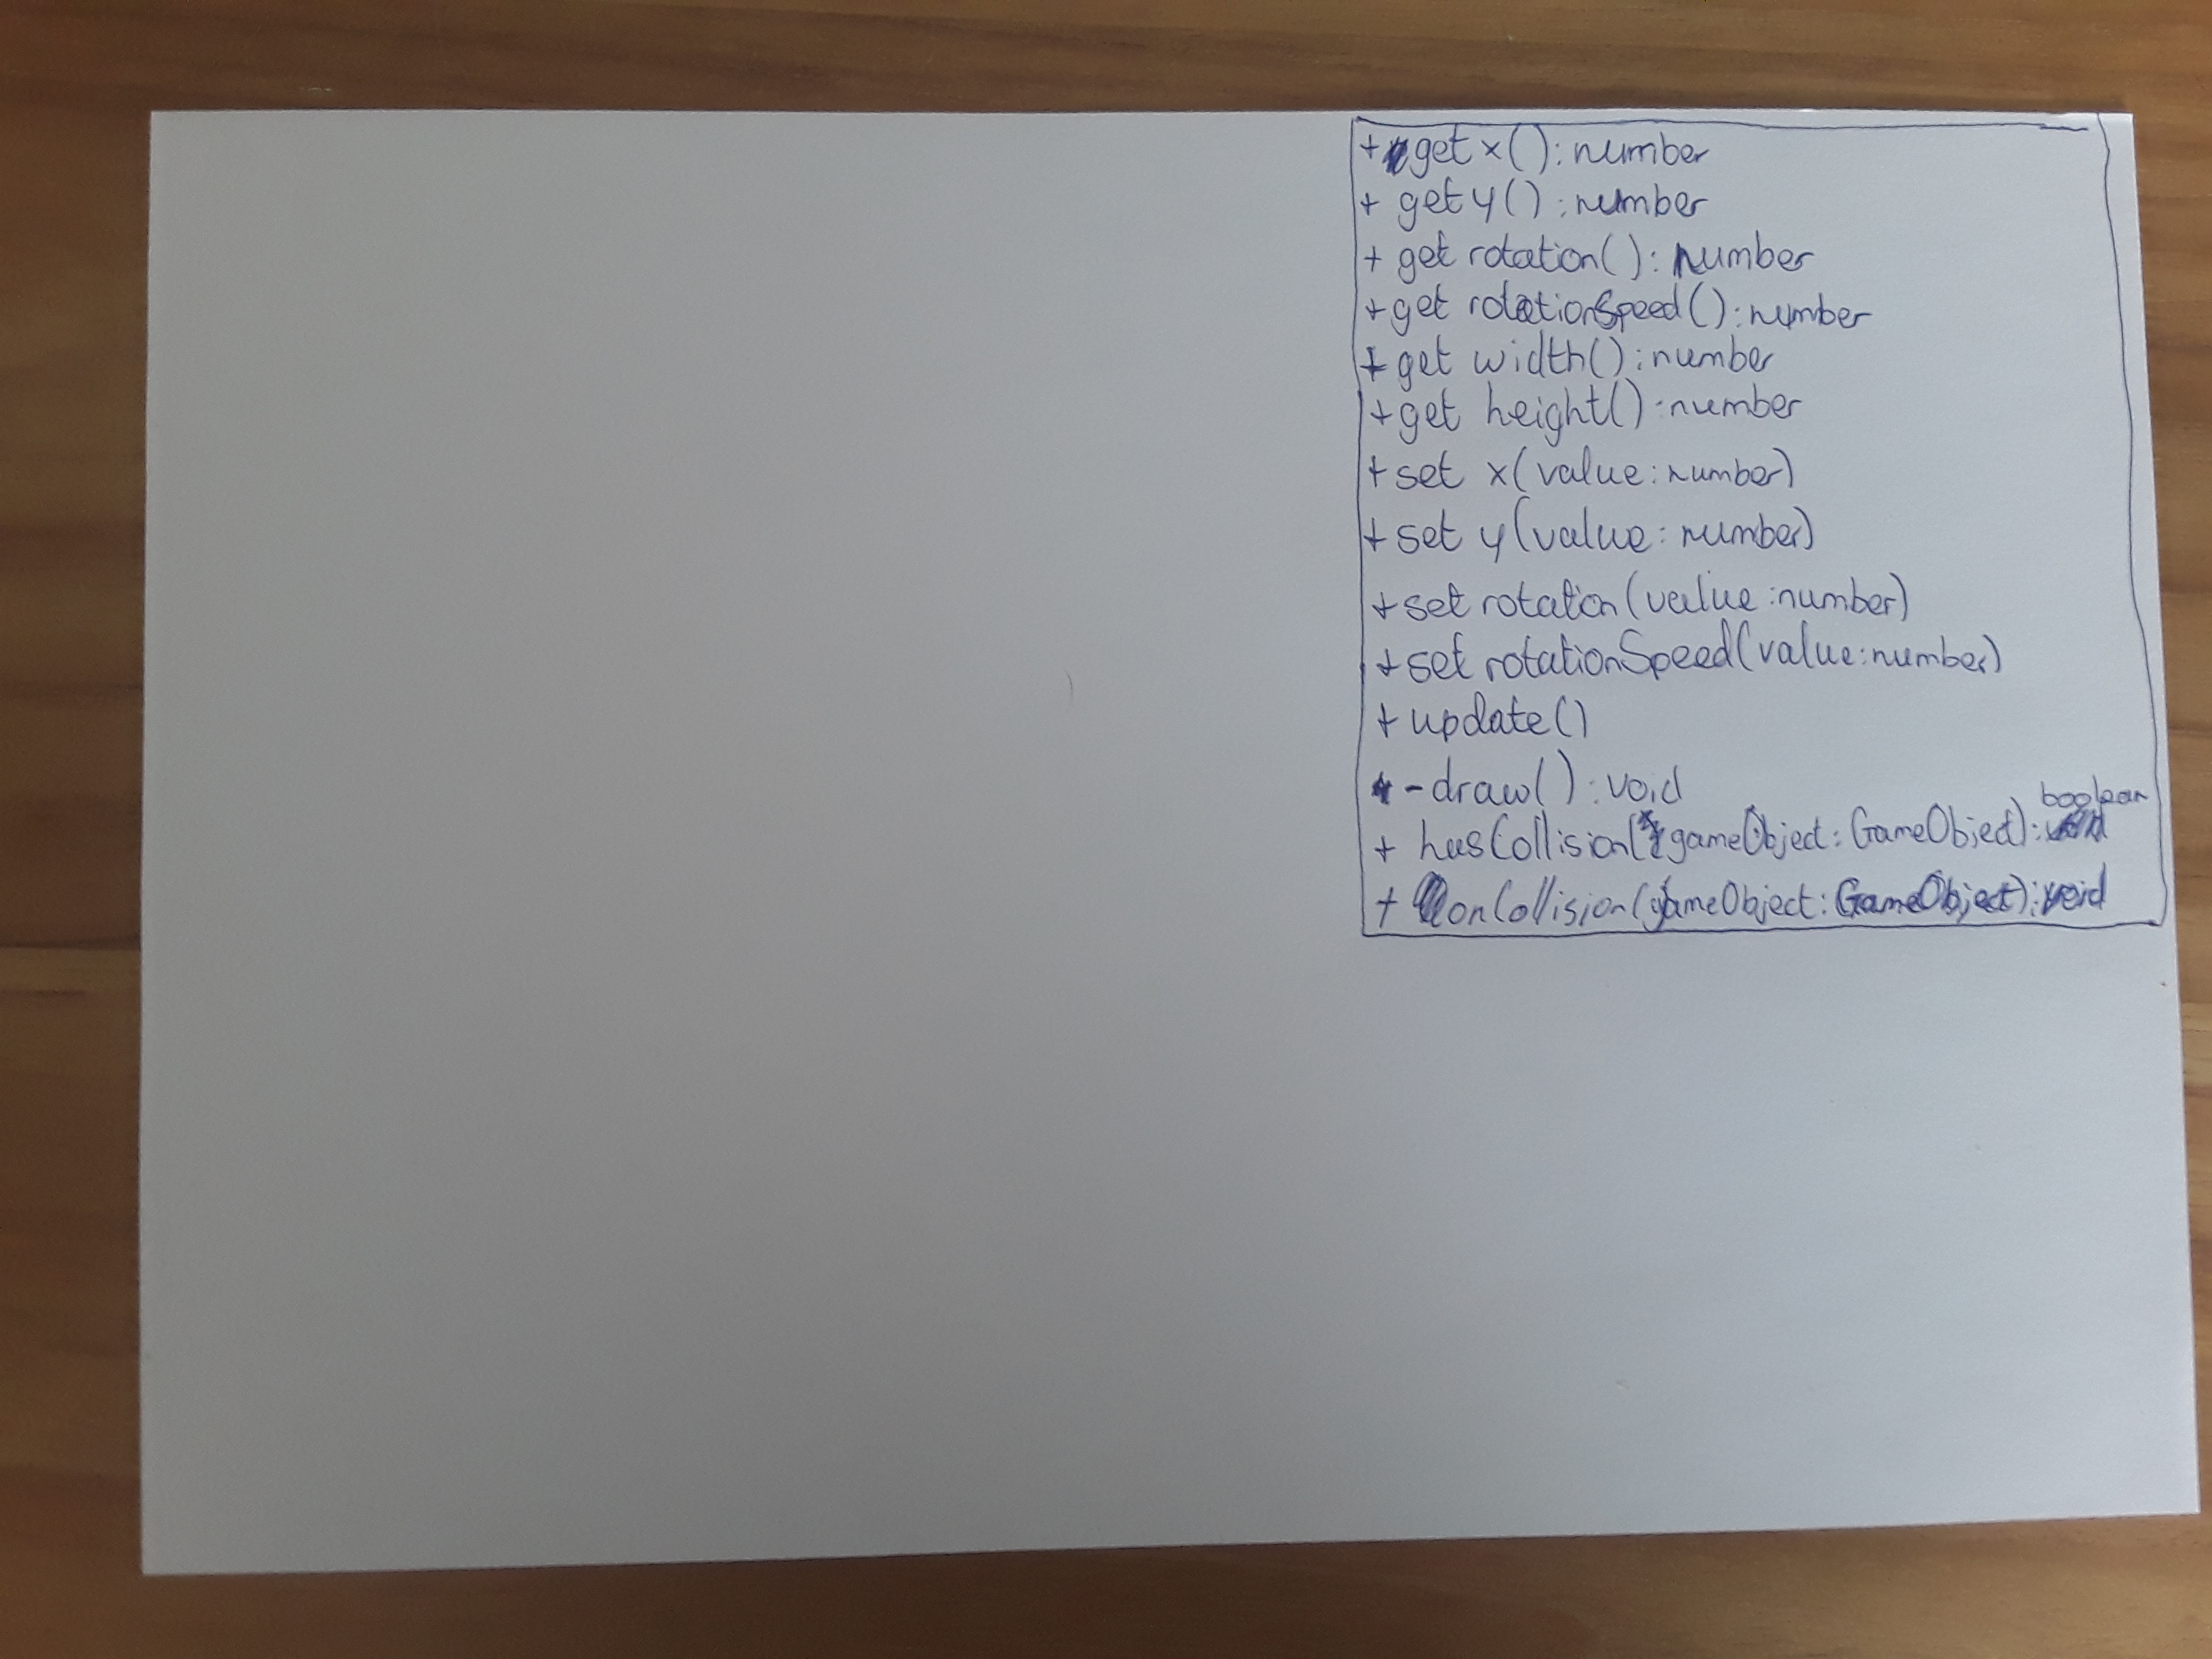 + get x(): number
+ get y(): number
+ get rotation(): number
+ get rotationSpeed(): number
+ get width(): number
+ get height(): number
+ set x(value: number)
+ set y(value: number)
+ set rotation(value: number)
+ set rotationSpeed(value: number)
+ update()
- draw(): void
boolean
+ hasCollision(gameObject: GameObject):
+ onCollision(gameObject: GameObject): void